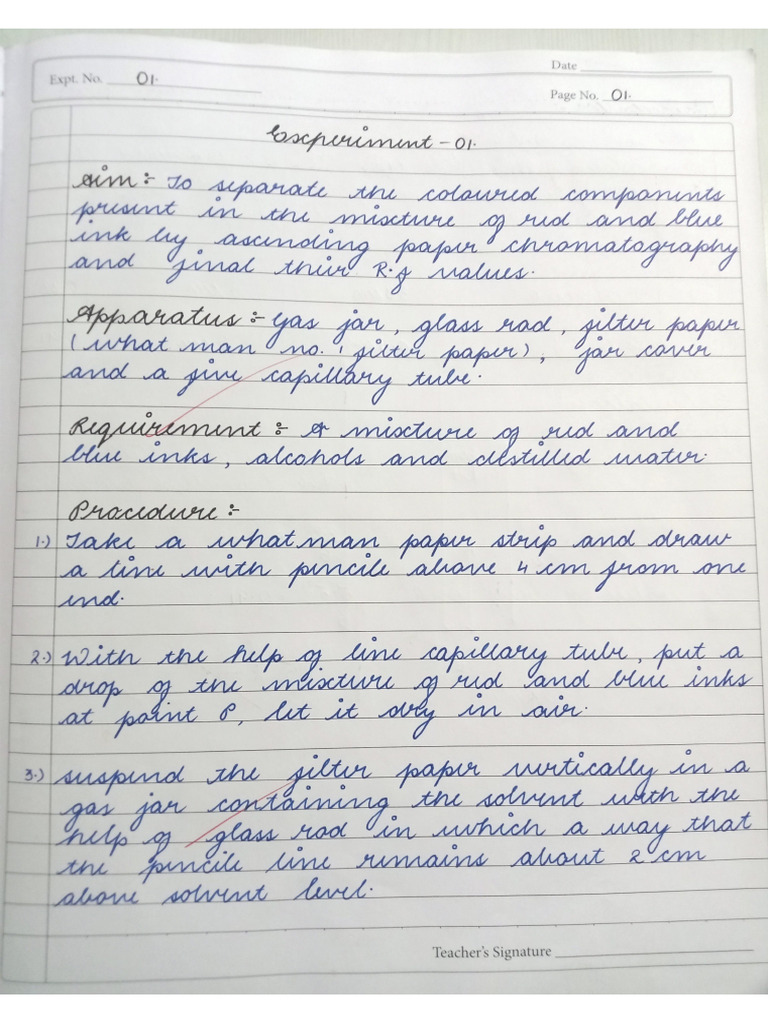 Date
Expt. No. 01.
Page No. 01.
Experiment - 01.
Aim :- To separate the coloured components
present in the mixture of red and blue
ink by ascending paper chromatography
and final their R.f values.
Apparatus :- Gas jar, glass rod, filter paper
(what man no. 1 filter paper), jar cover
and a five capillary tube.
Requirement :- A mixture of red and
blue inks, alcohols and destilled water.
Procedure :-
1.) Take a whatman paper strip and draw
a line with pencile above 4 cm from one
end.
2.) With the help of line capillary tube, put a
drop of the mixture of red and blue inks
at point P, let it dry in air.
3.) suspend the filter paper vertically in a
gas jar containing the solvent with the
help of glass rod in which a way that
the pencile line remains about 2 cm
above solvent level.
Teacher's Signature